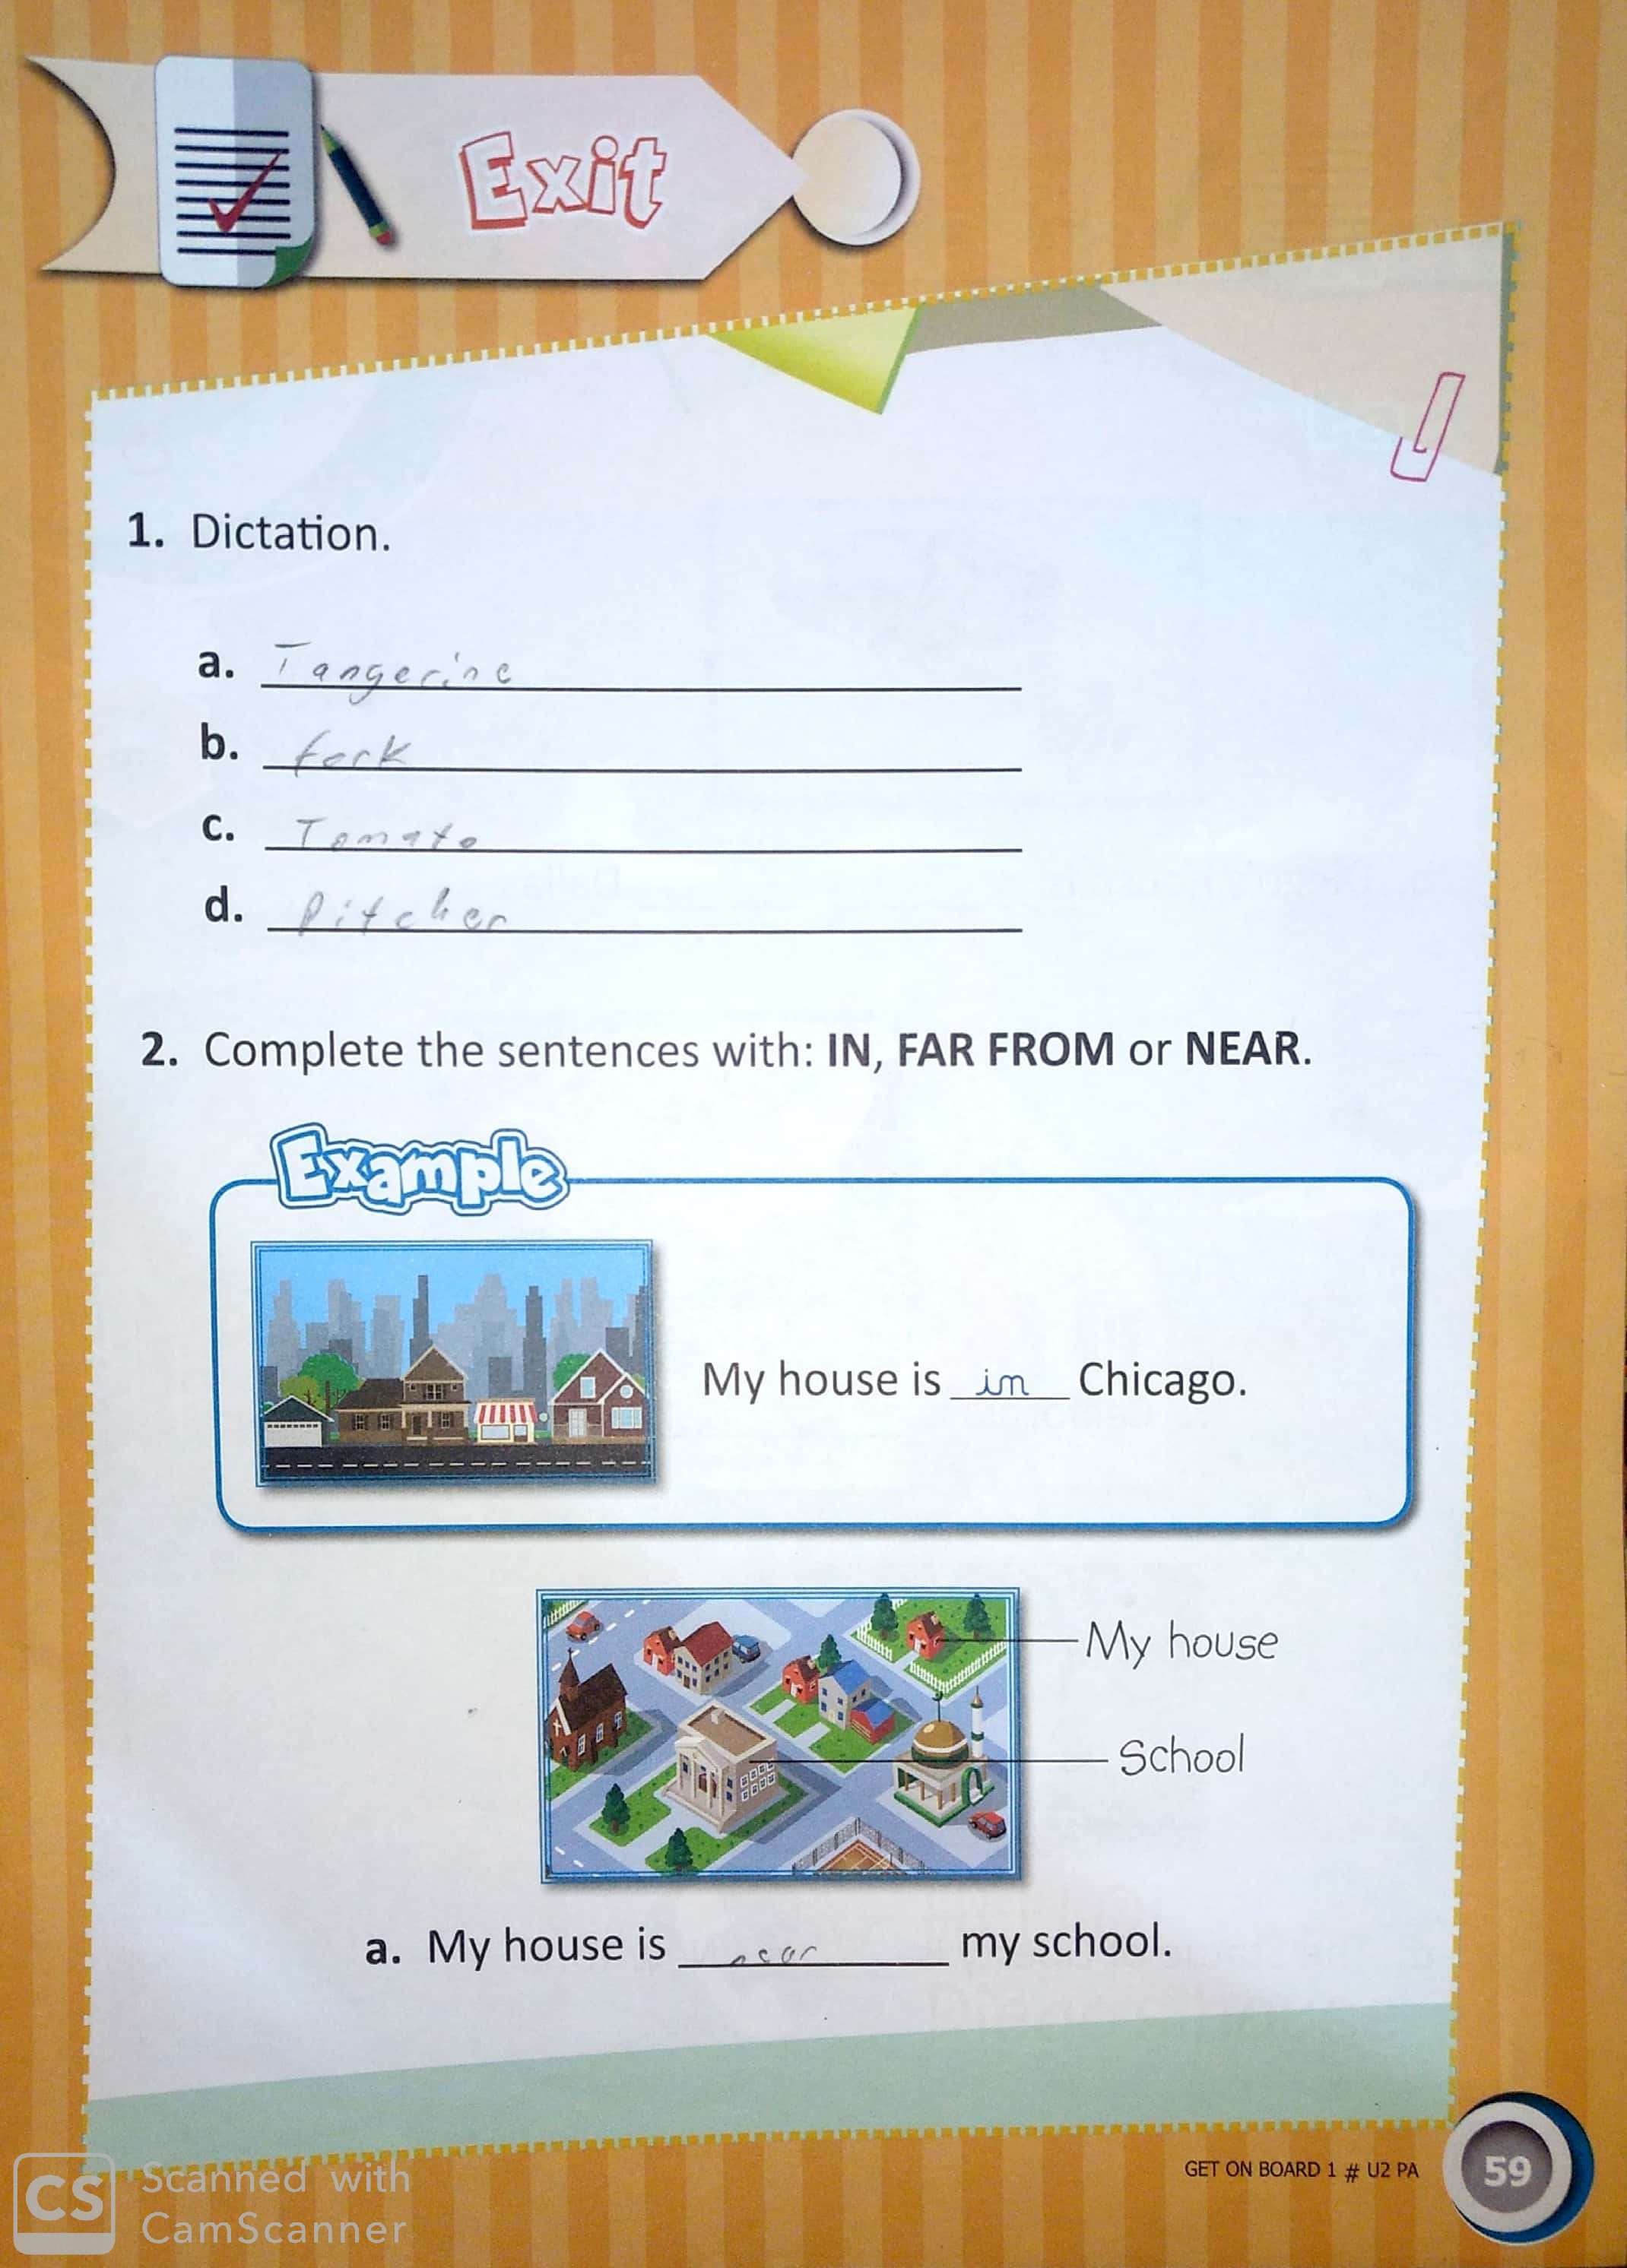 Exit
1. Dictation.
a. Tangerine
b. fork
c. Tomato
d. Pitcher
2. Complete the sentences with: IN, FAR FROM or NEAR.
Example
My house is in Chicago.
My house
School
a. My house is near my school.
GET ON BOARD 1 # U2 PA
59
CS Scanned with
CamScanner